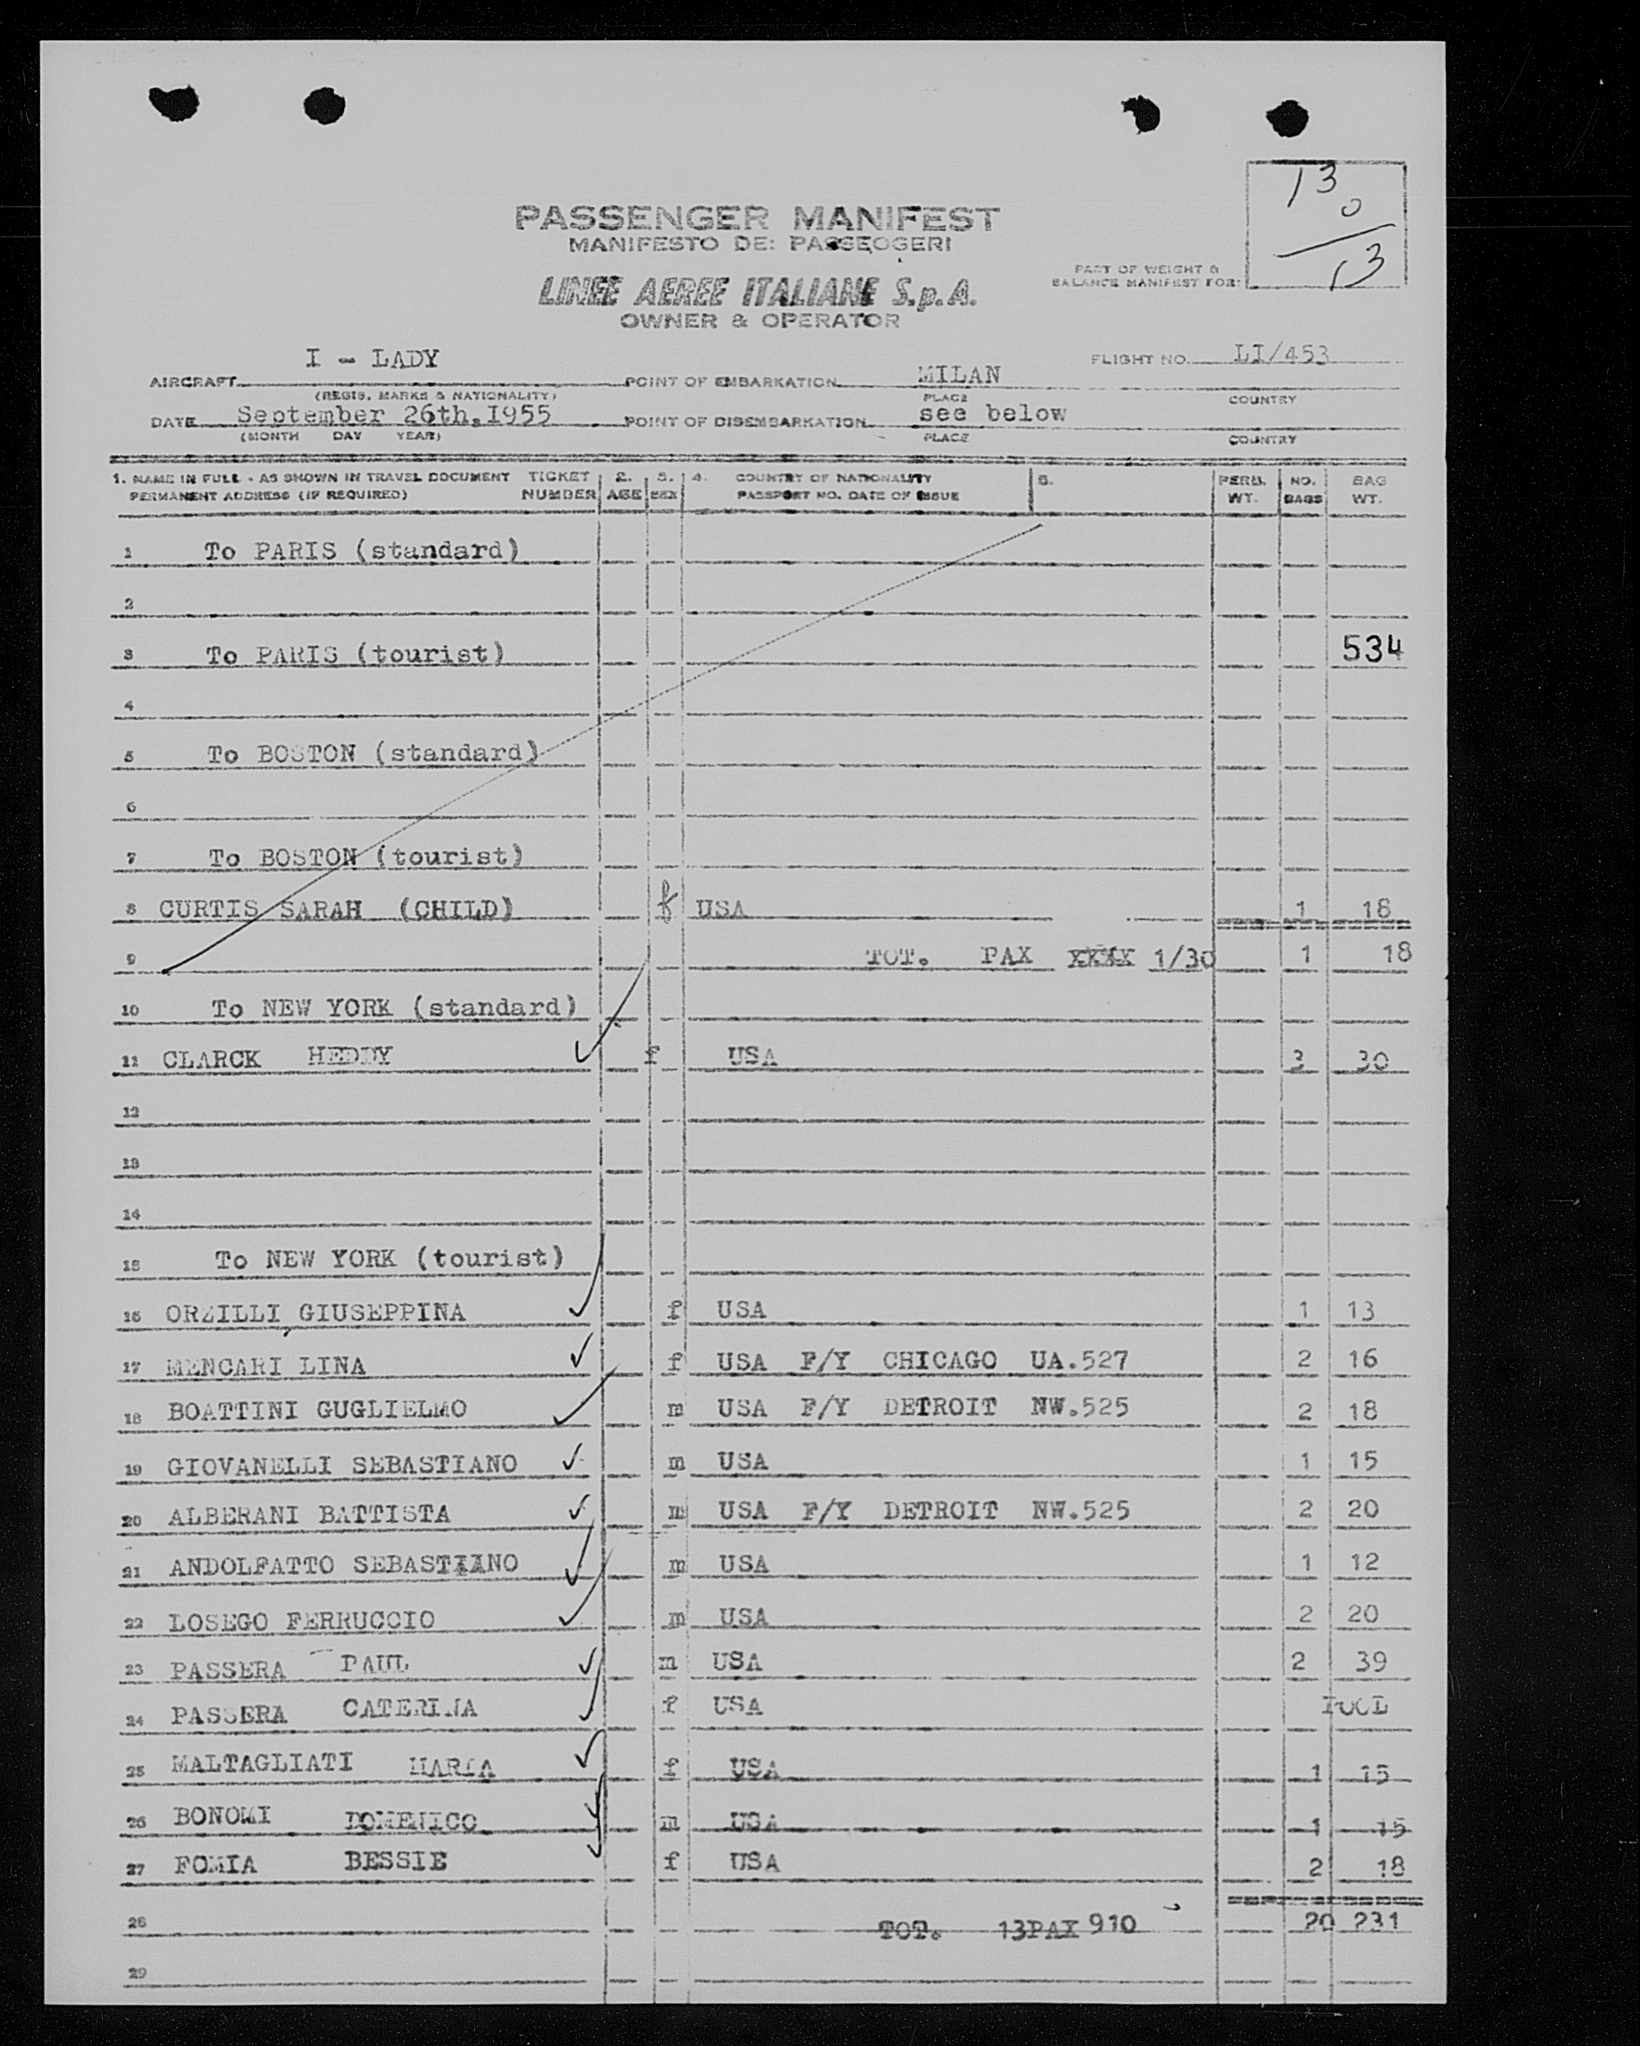 13
0
13
PASSENGER MANIFEST
MANIFESTO DE: PASSEOGERI
PART OF WEIGHT &
BALANCE MANIFEST FOR:
LINEE AEREE ITALIANE S.p.A.
OWNER & OPERATOR
I - LADY FLIGHT NO. LI/453
AIRCRAFT POINT OF EMBARKATION MILAN
(REGIS. MARKS & NATIONALITY) PLACE COUNTRY
DATE September 26th.1955 POINT OF DISEMBARKATION see below
(MONTH DAY YEAR) PLACE COUNTRY
1. NAME IN FULL - AS SHOWN IN TRAVEL DOCUMENT TICKET 2. 3. 4. COUNTRY OF NATIONALITY PERS. NO. BAG
PERMANENT ADDRESS (IF REQUIRED) NUMBER AGE SEX PASSPORT NO. DATE OF ISSUE WT. BAGS WT.
1 To PARIS (standard)
2
3 To PARIS (tourist) 534
4
5 To BOSTON (standard)
6
7 To BOSTON (tourist)
8 CURTIS SARAH (CHILD) f USA 1 18
9 TOT. PAX XXXX 1/30 1 18
10 To NEW YORK (standard)
11 CLARCK HEDDY f USA 3 30
12
13
14
15 To NEW YORK (tourist)
16 ORZILLI GIUSEPPINA f USA 1 13
17 MENCARI LINA f USA F/Y CHICAGO UA.527 2 16
18 BOATTINI GUGLIELMO m USA F/Y DETROIT NW.525 2 18
19 GIOVANELLI SEBASTIANO m USA 1 15
20 ALBERANI BATTISTA m USA F/Y DETROIT NW.525 2 20
21 ANDOLFATTO SEBASTIANO m USA 1 12
22 LOSEGO FERRUCCIO m USA 2 20
23 PASSERA PAUL m USA 2 39
24 PASSERA CATERINA f USA POOL
25 MALTAGLIATI MARIA f USA 1 15
26 BONOMI DOMENICO m USA 1 15
27 FOMIA BESSIE f USA 2 18
28 TOT. 13PAX 910 20 231
29